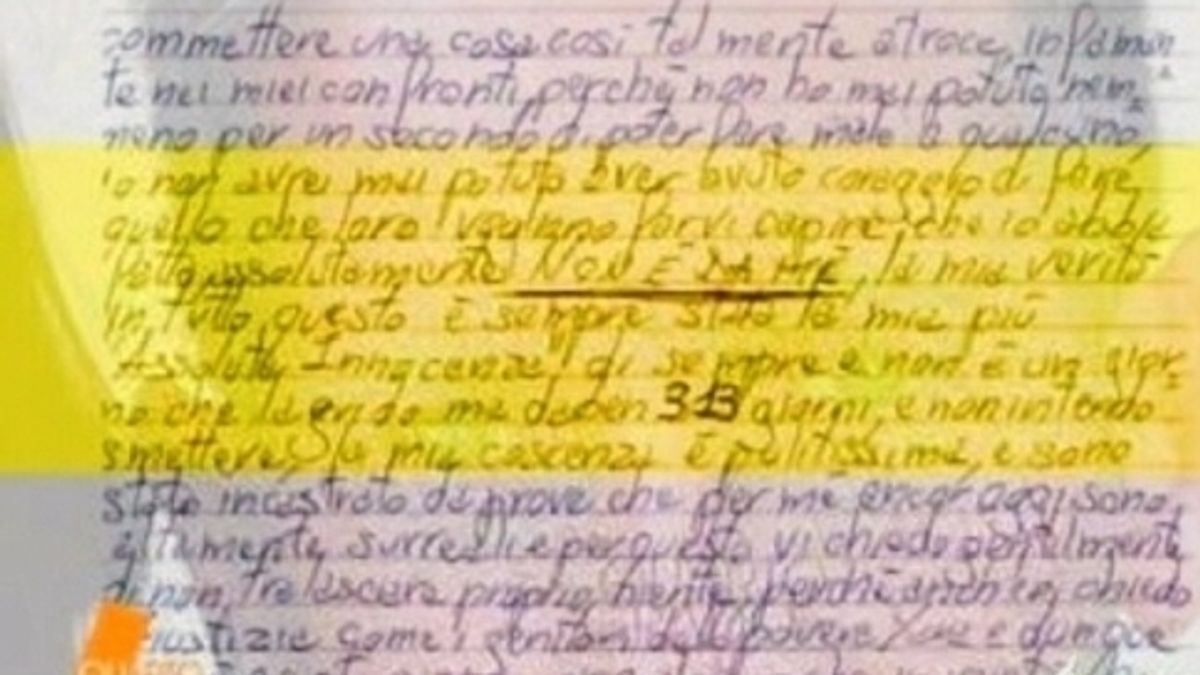 commettere una cosa così tal mente atroce, infaman
te nei miei confronti, perchè non ho mai potuto nem=
meno per un secondo di poter fare male a qualcuno,
io non avrei mai potuto aver avuto coraggio di fare
quello che loro vogliano farvi capire, che io abbia
fatto, assolutamente NON È DA ME, la mia verità
in tutto questo è sempre stata la mia più
Assoluta Innocenza, di sempre e non è un gior=
no che la grido ma da ben 313 giorni, e non intendo
smettere, la mia coscenza è pulitissima, e sono
stato incastrato da prove che per me ancor oggi sono,
altamente surreali e per questo vi chiedo gentilmente
di non tralascare proprio niente, perchè anch'io chiedo
giustizia come i genitori della povera e dunque